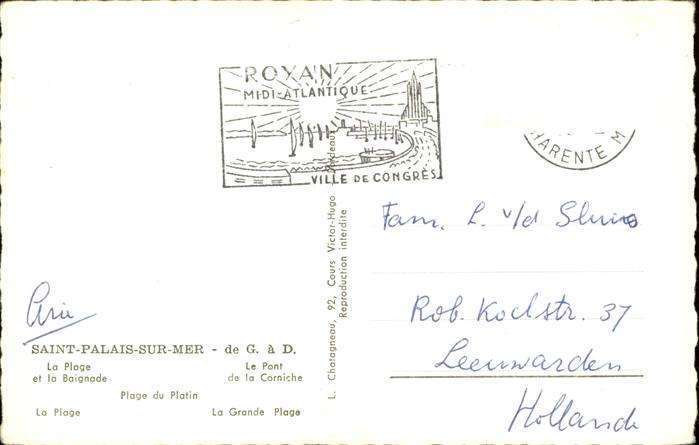 ROYAN
MIDI-ATLANTIQUE
VILLE DE CONGRÈS
HARENTE M
Fam. L. v/d Sluis
Rob. Kochstr. 37
Leeuwarden
Hollande
L. Chatagneau, 92, Cours Victor-Hugo Bordeaux
Reproduction interdite
SAINT-PALAIS-SUR-MER - de G. à D.
La Plage
et la Baignade
Le Pont
de la Corniche
Plage du Platin
La Plage
La Grande Plage